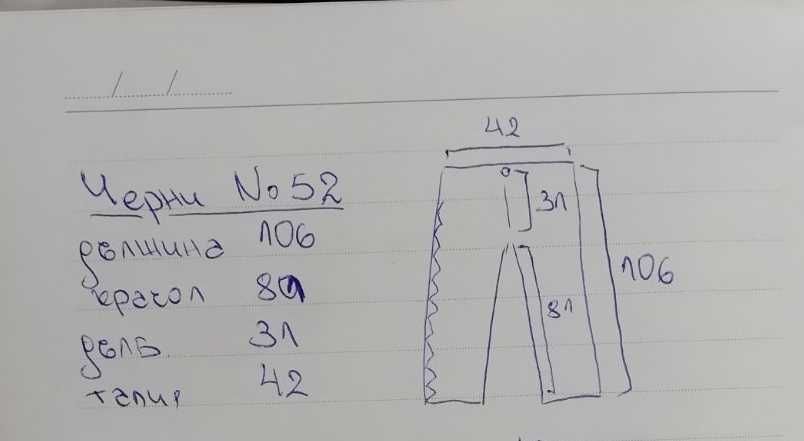 Черни No 52
должина 106
крачол 81
дељб. 31
талия 42
42
31
106
81